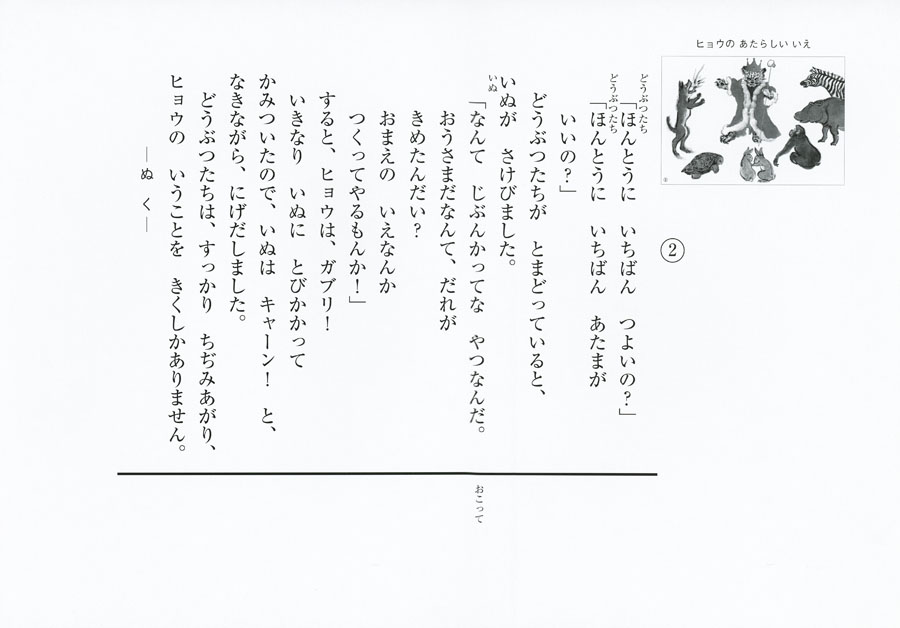 ヒョウの あたらしい いえ
②
どうぶつたち
「ほんとうに いちばん つよいの？」
どうぶつたち
「ほんとうに いちばん あたまが
いいの？」
どうぶつたちが とまどっていると、
いぬが さけびました。
いぬ
「なんて じぶんかってな やつなんだ。
おうさまだなんて、だれが
きめたんだい？
おまえの いえなんか
つくってやるもんか！」
すると、ヒョウは、ガブリ！
いきなり いぬに とびかかって
かみついたので、いぬは キャーン！ と、
なきながら、にげだしました。
どうぶつたちは、すっかり ちぢみあがり、
ヒョウの いうことを きくしかありません。
―ぬ く―
おこって